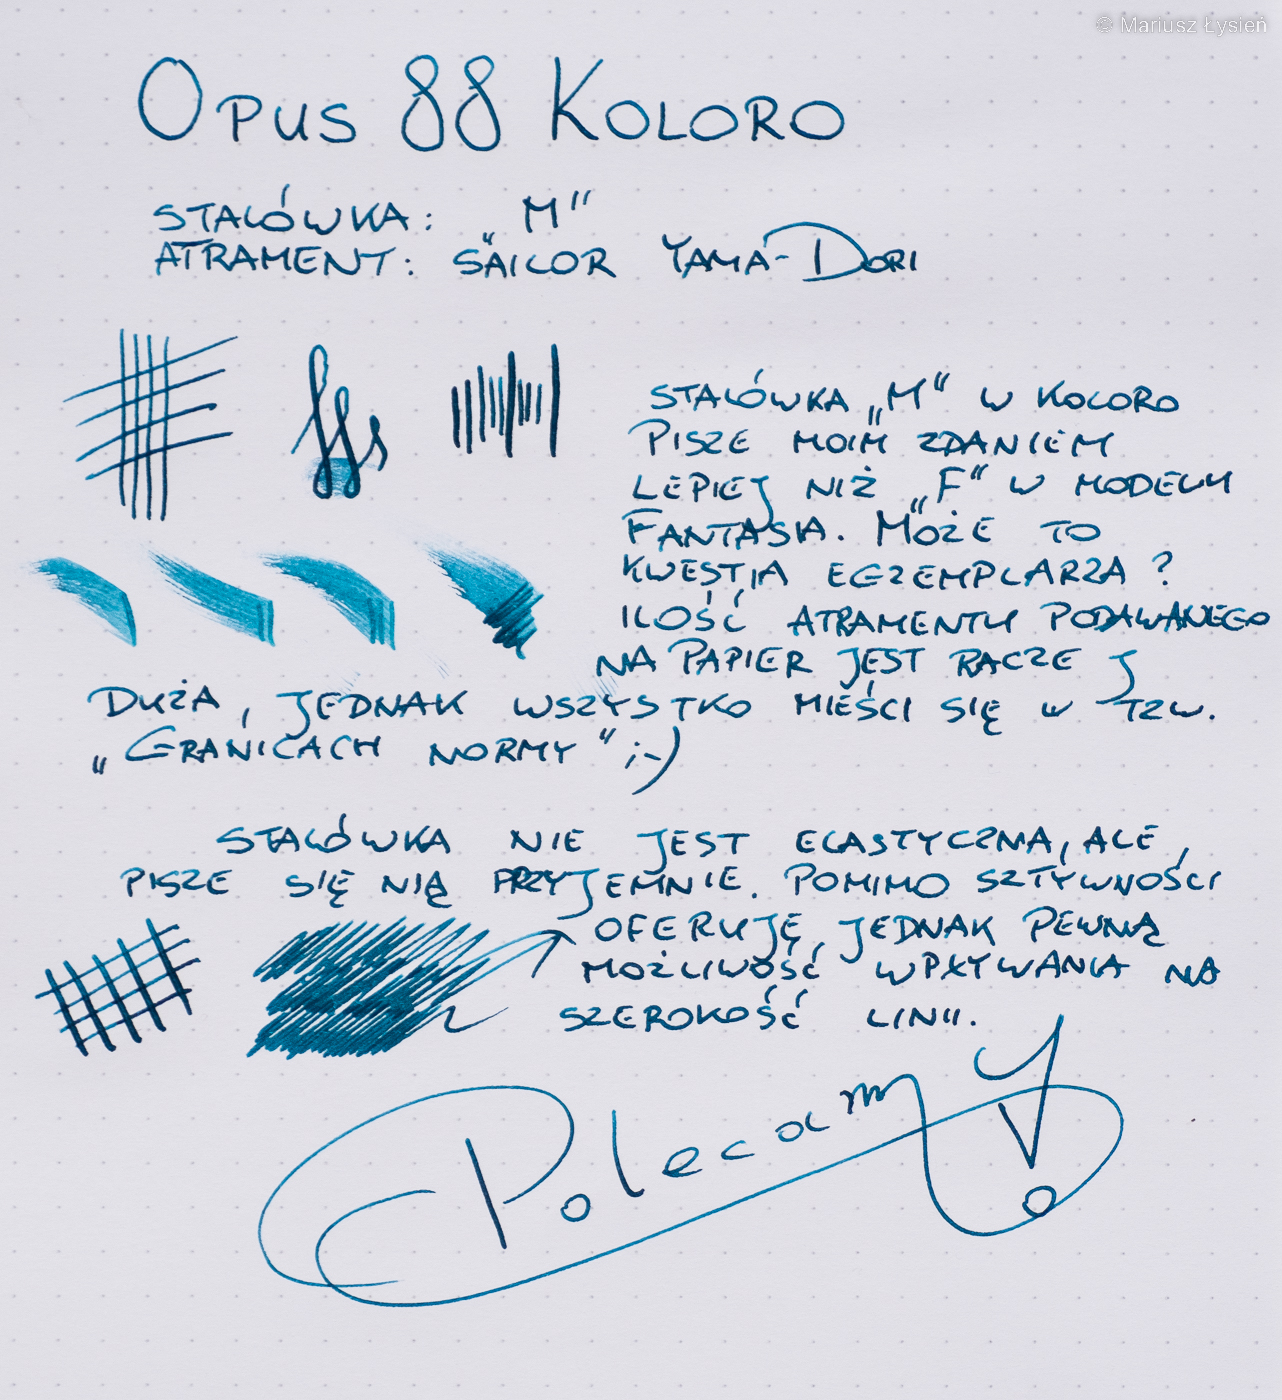 © Mariusz Łysień
Opus 88 Koloro
STALÓWKA: „M”
ATRAMENT: SAILOR YAMA-DORI
STALÓWKA „M” W KOLORO
PISZE MOIM ZDANIEM
LEPIEJ NIŻ „F” W MODELU
FANTASIA. MOŻE TO
KWESTIA EGZEMPLARZA?
ILOŚĆ ATRAMENTU PODAWANEGO
NA PAPIER JEST RACZEJ
DUŻA, JEDNAK WSZYSTKO MIEŚCI SIĘ W TZW.
„GRANICACH NORMY” ;-)
STALÓWKA NIE JEST ELASTYCZNA, ALE,
PISZE SIĘ NIĄ PRZYJEMNIE. POMIMO SZTYWNOŚCI
OFERUJĘ, JEDNAK PEWNĄ
MOŻLIWOŚĆ WPŁYWANIA NA
SZEROKOŚĆ LINII.
Polecam!